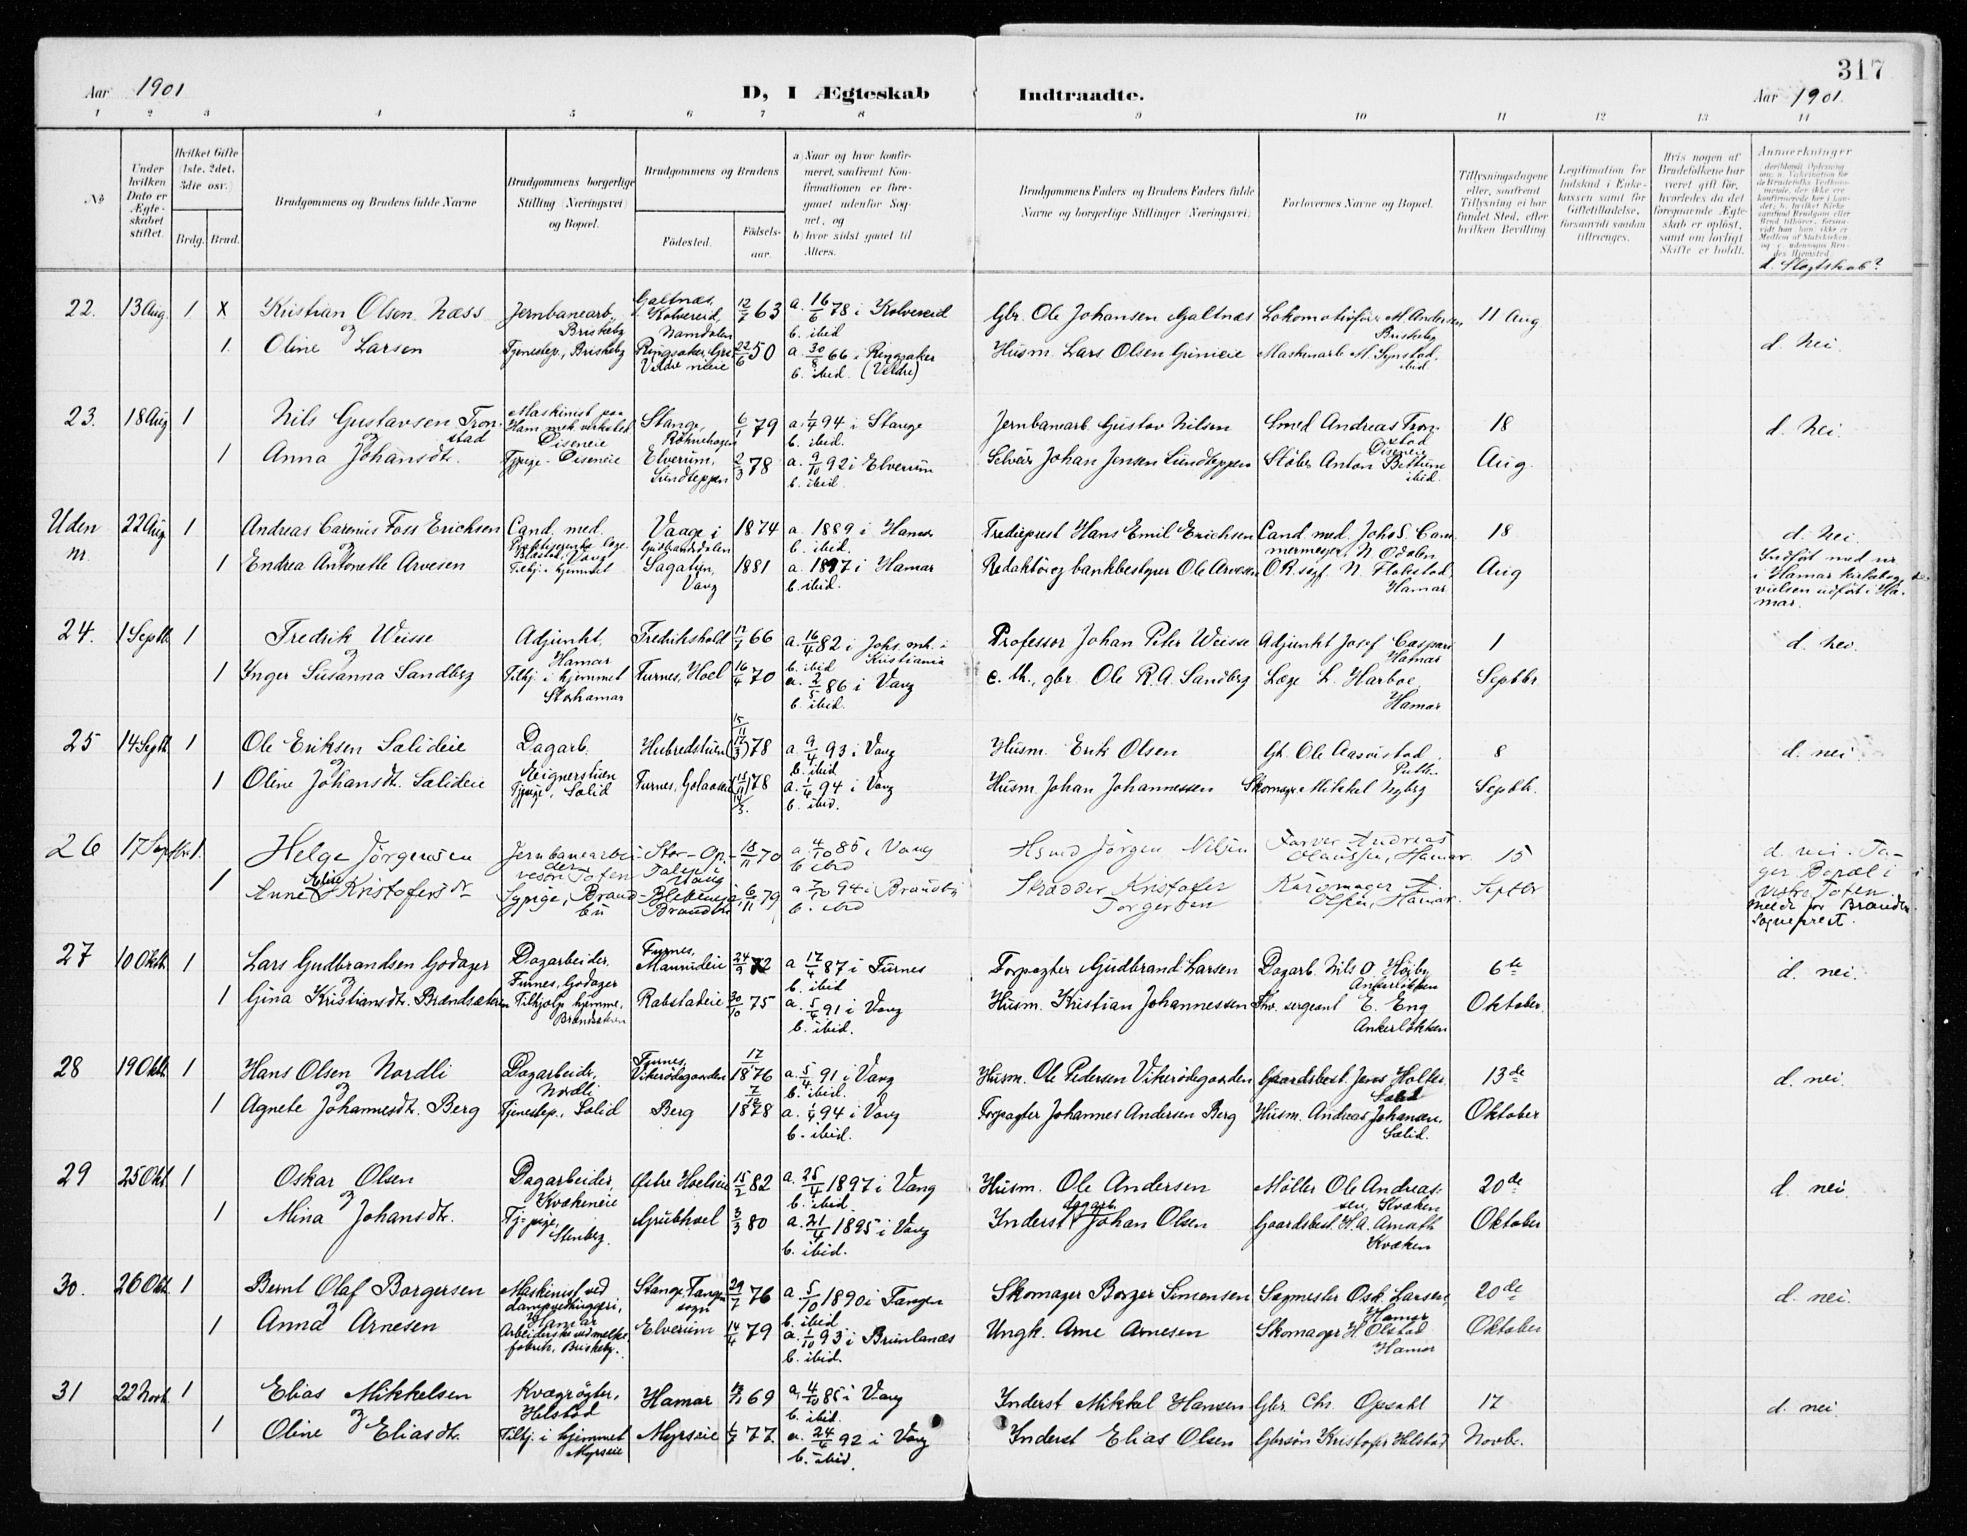 317
Aar 1901
D, I Ægteskab
Indtraadte.
Aar 1901.
1 2 3 4 5 6 7 8 9 10 11 12 13 14
No
Under hvilken Dato er Ægteskabet stiftet.
Hvilket Gifte (1ste, 2det, 3die osv.)
Brdg. Brud.
Brudgommens og Brudens fulde Navne
Brudgommens borgerlige Stilling (Næringsvei) og Bopæl.
Brudgommens og Brudens
Fødested.
Fødselsaar.
a) Naar og hvor konfirmeret, saafremt Konfirmationen er foregaaet udenfor Sognet, og
b) hvor sidst gaaet til Alters.
Brudgommens Faders og Brudens Faders fulde Navne og borgerlige Stillinger (Næringsvei)
Forlovernes Navne og Bopæl.
Tillysningsdagene eller, saafremt Tillysning ei har fundet Sted, efter hvilken Bevilling
Legitimation for Indskud i Enkekassen samt for Giftetilladelse, forsaavidt saadan tiltrænges.
Hvis nogen af Brudefolkene har været gift før, hvorledes da det foregaaende Ægteskab er opløst, samt om lovligt Skifte er holdt.
Anmerkninger
d. Slægtskab?
22. 13 Aug. 1 x Kristian Olsen Næss Jernbanearb., Briskeby Galtnæs, Kolvereid, Namdalen 12/7 63 a. 16/6 78 i Kolvereid b. ibid Gbr. Ole Johansen Galtnæs Lokomotivfører M. Andersen Briskeby 11 Aug
og
1. Oline Larsen Tjenestep., Briskeby Ringsaker, Veldre 22/6 50 a. 30/9 66 i Ringsaker b. ibid. (Veldre) Husm. Lars Olsen Grinieie Maskinarb. M. Synstad, ibid d. nei.
23. 18 Aug 1 Nils Gustavsen Tronstad Maskinist paa Ham. mek. verksted Diseneie Stange, 6/1 79 a. 1/4 94 i Stange b. ibid. Jernbanearb. Gustav Nilsen Smed Andreas Tronstad Diseneie 18 d. nei.
og
1 Anna Johansdtr. Tjpige Diseneie Elverum, Lundteppen 2/3 78 a. 9/10 92 i Elverum b. ibid. Selveier Johan Jensen Lundteppen Støber Anton Bettum ibid. Aug.
Uden nr. 22 Aug 1 Andreas Carenius Foss Erichsen Cand. med. Vaage i Gudbrandsdalen 1874 a. 1889 i Hamar b. ibid. Tredieprest Hans Emil Erichsen Cand. med. Johs. Cammermeyer, N. Odalen 18 d. nei.
og
1 Endrea Antonette Arvesen Tilhj. i hjemmet Sagatun, Vang 1881 a. 1897 i Hamar b. ibid. Redaktør og bankbestyrer Ole Arvesen O.R. sagf. N. Flakstad, Hamar Aug Indført med nr i Hamar kirkebog, vielsen udført i Hamar.
24. 1 Septb. 1 Fredrik Weisse Adjunkt, Hamar Fredrikshald 17/7 66 a. 16/4 82 i Johs. mh. i Kristiania b. ibid Professor Johan Peter Weisse Adjunkt Josef Caspari Hamar 1 d. nei.
og
1 Inger Susanna Sandberg Tilhj. i hjemmet Storhamar Furnes, Hoel 16/4 70 a. 2/5 86 i Vang b. ibid. c. th., gbr. Ole R.A. Sandberg Læge L. Harboe, Hamar Septbr
25 14 Septb. 1 Ole Eriksen Salideie Dagarb. Eignerstuen Hubredstuen 15/11 (17/3) 78 a. 9/4 93 i Vang b. ibid Husm. Erik Olsen Gb. Ole Aasvistad, Putten 8 d. nei.
og
1 Oline Johansdtr. Salideie Tjpige, Salid Furnes, (15/11) 78 14/3. a. 1/4 94 i Vang b. ibid. Husm. Johan Johannessen Skomager Mikkel Nyberg Septbr.
26 17 Septbr. 1. Helge Jørgensen Jernbanearbeider vestre Toten Stor-Op-Falen i Vang 18/11 70 a. 4/10 85 i Vang b. ibid Husmd Jørgen Nilsen Farver Andreas Olaussen, Hamar 15
1 Anne Eline Kristofersdtr Sypige, Brandbu Brandbu 6/11 79 a 7/10 94 i Brandbu b. ibid Skrædder Kristofer Torgersen Kurvmager A Olsen, Hamar. Septbr d. nei - Tager Bopæl i vestre Toten meldt for Brandbu Sogneprest.
27 10 Oktb. 1 Lars Gudbrandsen Godager Dagarbeider, Furnes, Godager Furnes, Maurudeie 24/9 72 a 17/4 87 i Furnes b. ibid Forpagter Gudbrand Larsen Dagarb. Nils O. Højby Ankerløkken 6te d. nei.
og
1 Gina Kristiansdtr. Brændsæteren Tilhjælp hjemme, Brændsæteren Rabstadeie 30/10 75 a. 5/4 91 i Vang b. ibid. Husm. Kristian Johannessen Fhv. sergeant E. Eng Ankerløkken Oktober.
28 19 Oktb. 1 Hans Olsen Nordli Dagarbeider, Nordli Furnes, Vikerødegaarden 17/1 1876 a. 5/4 91 i Vang b. ibid. Husm. Ole Pedersen Vikerødegaarden Gaardsbest. Jens Holter Salid 13de d. nei.
og
1 Agnete Johannesdtr. Berg Tjenestep., Salid Berg 7/12 1878 a. 1/4 94 i Vang b. ibid. Forpagter Johannes Andersen Berg Husm. Andreas Johansen, Sælid. Oktober
29 25 Okt. 1 Oskar Olsen Dagarbeider, Kvækeneie Østre Hoelseie 15/2 82 a. 25/4 1897 i Vang b. ibid. Husm. Ole Andersen Møller Ole Andreassen, Kvæken 20de d. nei.
og
1 Mina Johansdtr. Tj-pige, Stenberg. Grubhoel 3/3 80 a. 21/4 1895 i Vang b. ibid. Inderst dagarb. Johan Olsen Gaardsbest. H.A. Amoth Kvæken Oktober
30. 26 Okt. 1 Bernt Olaf Borgersen Maskinist ved dampvæhuggeri, Hamar Stange, Tangen sogn 29/7 76 a. 5/10 1890 i Tangen b. ibid Skomager Borger Simensen Sagmester Osk. Larsen, Hamar 20de d. nei.
og
1 Anna Arnesen Arbeiderske ved melkefabrik, Briskeby. Elverum 14/4 79 a. 1/10 93 i Brunlanæs b. ibid. Ungk. Arne Arnesen Skomager H. Olstad Hamar Oktober
31 22 Novb. 1 Elias Mikkelsen Kvægrøgter, Hilstad Hamar 69 a. 4/10 85 i Vang b. ibid. Inderst Mikkel Hansen Gbr. Chr. Opsahl 17 d. nei.
og
1 Oline Eliasdtr. Tilhj. i hjemmet Myrseie Myrseie 77. a. 24/4 92 i Vang b. ibid. Inderst Elias Olsen Gbrsøn Kristofer Hilstad Novbr.